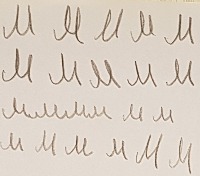 M M M M M
M M M M M
MMMM M M
M M M M M M